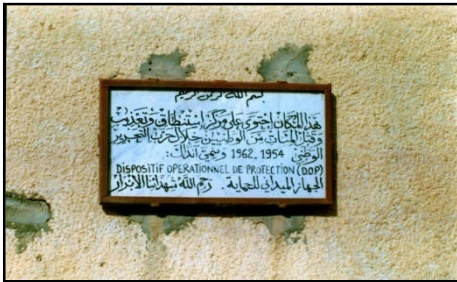 بسم الله الرحمن الرحيم
هذا المكان احتوى على مركز استنطاق وتعذيب
وقتل المئات من الوطنيين خلال حرب التحرير
الوطني 1954 ـ 1962 وسمي آنذاك:
DISPOSITIF OPERATIONNEL DE PROTECTION (DOP)
الجهاز الميداني للحماية. رحم الله شهداءنا الأبرار